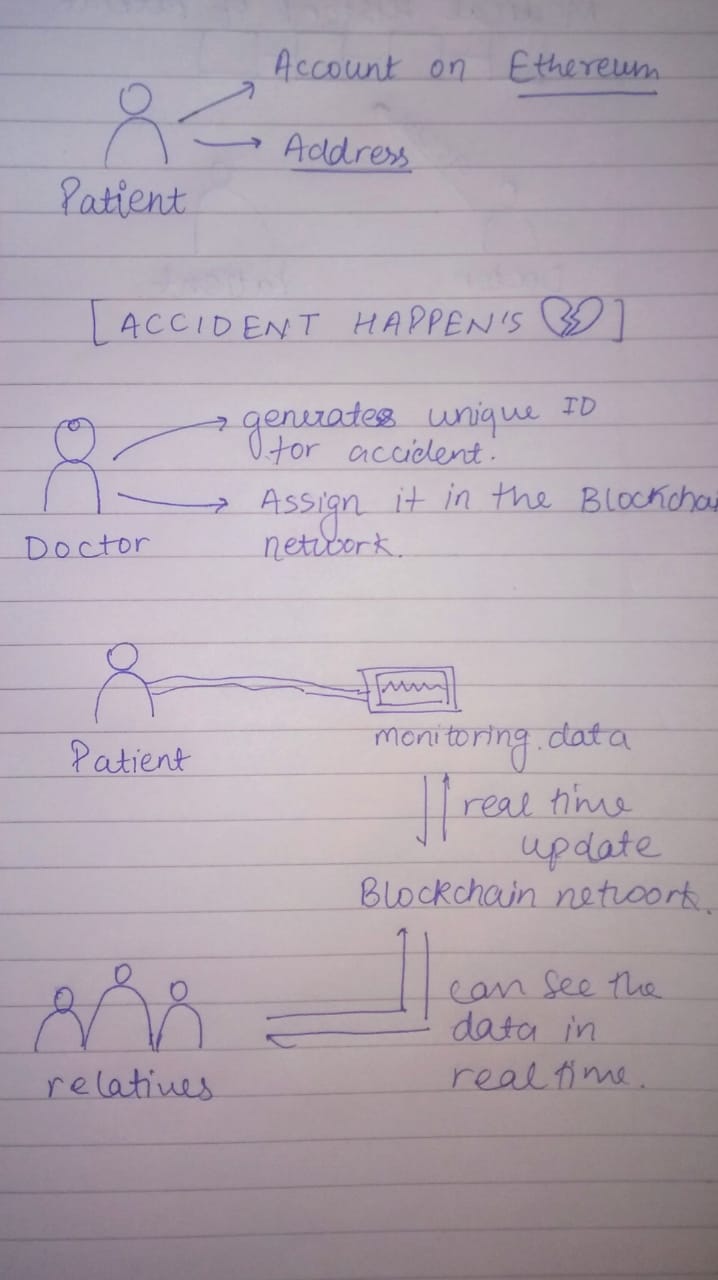 Account on Ethereum
Address
Patient
[ACCIDENT HAPPEN'S 💔]
generates unique ID
for accident.
Assign it in the Blockchai
Doctor
network.
Patient
monitoring data
real time
update
Blockchain network.
can see the
data in
relatives
real time.